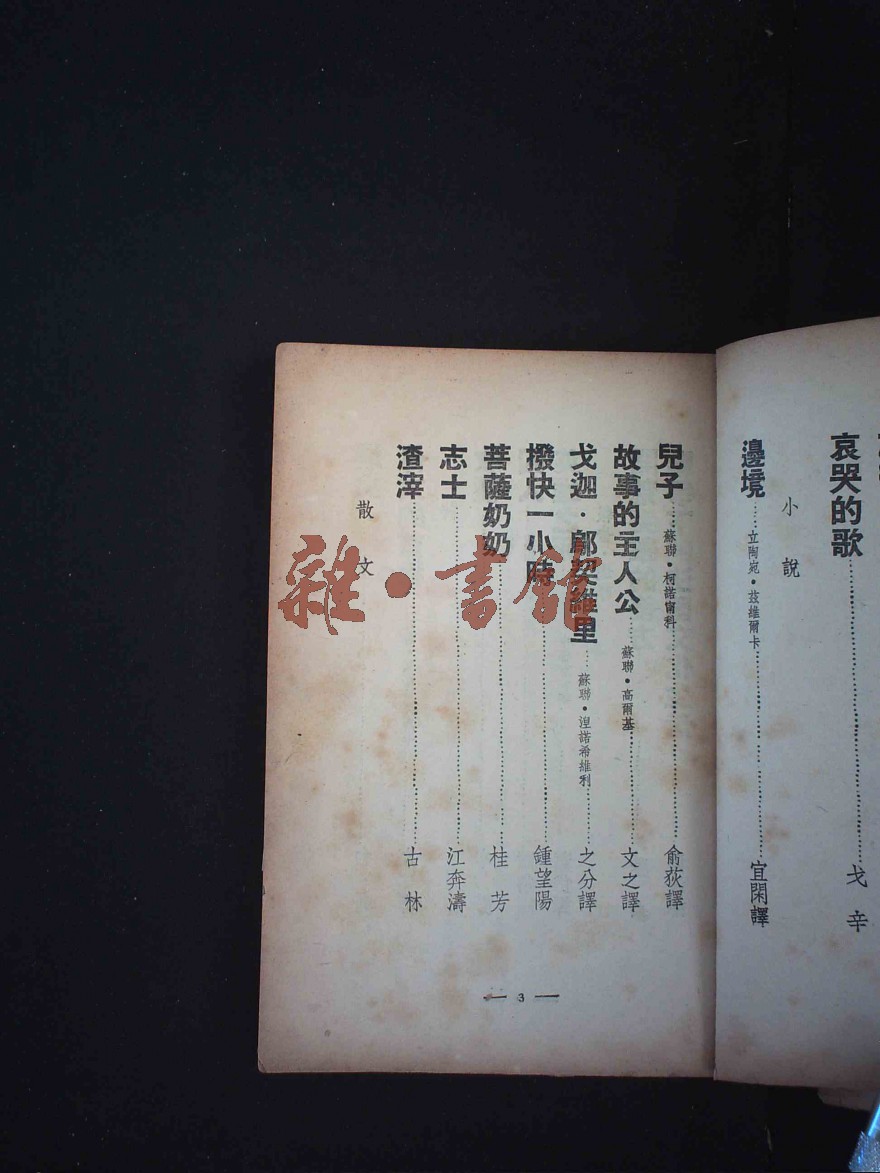 哀哭的歌……戈辛
小說
邊境……立陶宛·茲維爾卡……宜閑譯
兒子……蘇聯·柯諾甯科……俞荻譯
故事的主人公……蘇聯·高爾基……文之譯
戈迦·鄔契維里……蘇聯·湼諾希維利……之分譯
撥快一小時……鍾望陽
菩薩奶奶……桂芳
志士……江奔濤
渣滓……古林
散文
— 3 —
雜·書館